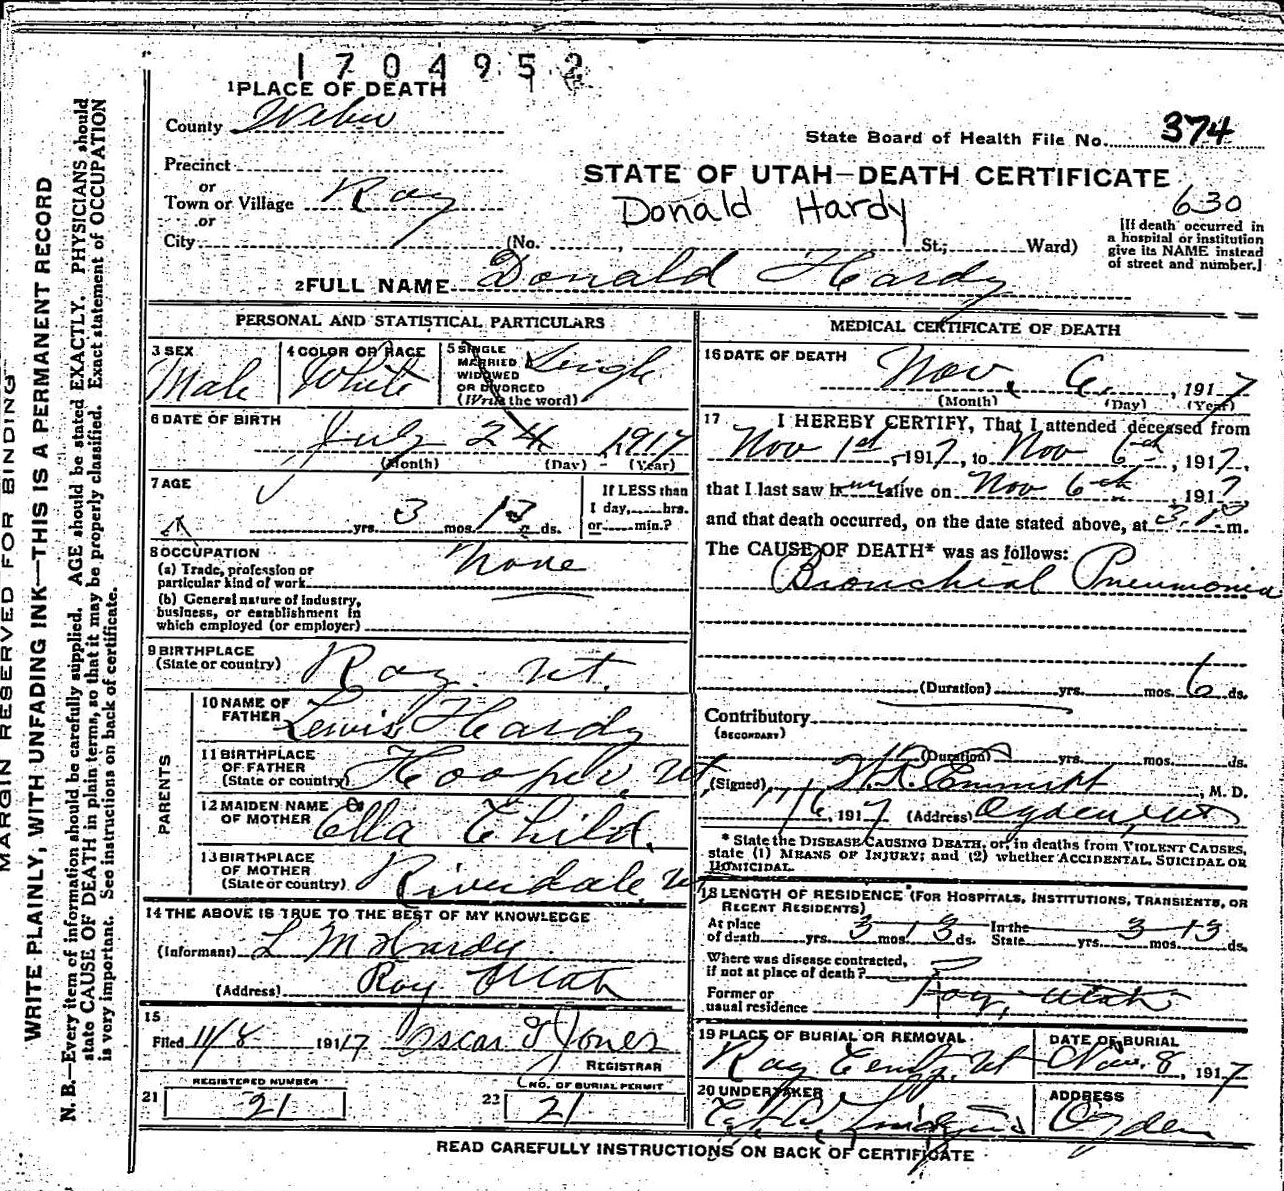 1704952
1 PLACE OF DEATH
County Weber
State Board of Health File No. 374
Precinct
or
Town or Village Roy
or
City (No. , St.; Ward)
STATE OF UTAH—DEATH CERTIFICATE
Donald Hardy
630
[If death occurred in
a hospital or institution
give its NAME instead
of street and number.]
2 FULL NAME Donald Hardy
PERSONAL AND STATISTICAL PARTICULARS
3 SEX
Male
4 COLOR OR RACE
White
5 SINGLE
MARRIED
WIDOWED
OR DIVORCED
(Write the word)
Single
6 DATE OF BIRTH
July 24 1917
(Month) (Day) (Year)
7 AGE
yrs. 3 mos. 13 ds.
If LESS than
1 day, hrs.
or min.?
8 OCCUPATION
(a) Trade, profession or
particular kind of work None
(b) General nature of industry,
business, or establishment in
which employed (or employer)
9 BIRTHPLACE
(State or country) Roy. Ut.
PARENTS
10 NAME OF
FATHER Lewis Hardy
11 BIRTHPLACE
OF FATHER
(State or country) Hooper, Ut
12 MAIDEN NAME
OF MOTHER Ella Child.
13 BIRTHPLACE
OF MOTHER
(State or country) Riverdale, Ut
14 THE ABOVE IS TRUE TO THE BEST OF MY KNOWLEDGE
(Informant) L M Hardy
(Address) Roy Utah
15
Filed 11/8 1917 Oscar Jones
REGISTRAR
REGISTERED NUMBER
21 21
NO. OF BURIAL PERMIT
22 21
MEDICAL CERTIFICATE OF DEATH
16 DATE OF DEATH
Nov. 6, 1917
(Month) (Day) (Year)
17 I HEREBY CERTIFY, That I attended deceased from
Nov 1st, 1917, to Nov 6th, 1917,
that I last saw him alive on Nov 6th, 1917,
and that death occurred, on the date stated above, at m.
The CAUSE OF DEATH* was as follows:
Bronchial Pneumonia
(Duration) yrs. mos. 6 ds.
Contributory
(SECONDARY)
(Duration) yrs. mos. ds.
(Signed) , M. D.
11/6, 1917 (Address) Ogden, Ut
* State the DISEASE CAUSING DEATH, or, in deaths from VIOLENT CAUSES,
state (1) MEANS OF INJURY; and (2) whether ACCIDENTAL, SUICIDAL OR
HOMICIDAL.
18 LENGTH OF RESIDENCE (FOR HOSPITALS, INSTITUTIONS, TRANSIENTS, OR
RECENT RESIDENTS)
At place
of death yrs. 3 mos. 13 ds. In the
State yrs. 3 mos. 13 ds.
Where was disease contracted,
if not at place of death?
Former or
usual residence Roy, Utah
19 PLACE OF BURIAL OR REMOVAL
Roy Ut
DATE OF BURIAL
Nov. 8, 1917
20 UNDERTAKER
ADDRESS
Ogden
READ CAREFULLY INSTRUCTIONS ON BACK OF CERTIFICATE
MARGIN RESERVED FOR BINDING
WRITE PLAINLY, WITH UNFADING INK—THIS IS A PERMANENT RECORD
N. B.—Every item of information should be carefully supplied. AGE should be stated EXACTLY. PHYSICIANS should
state CAUSE OF DEATH in plain terms, so that it may be properly classified. Exact statement of OCCUPATION
is very important. See instructions on back of certificate.